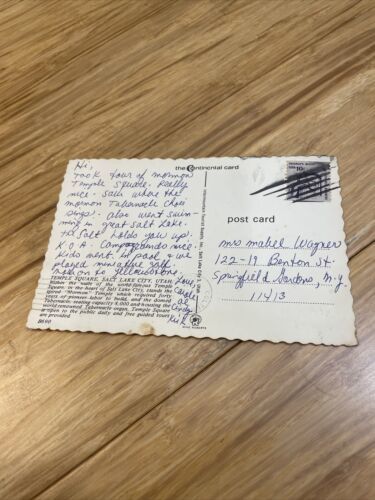 Hi,
Took tour of mormon
Temple Square. Really
nice. Saw where the
mormon Tabernacle Choir
sings. Also went swim-
ming in great Salt Lake.
The Salt holds you up.
K.O.A. Campgrounds nice.
Kids went in pool & we
played miniature golf.
Now on to Yellowstone.
Love,
Carole
al
Cindy
TEMPLE SQUARE, SALT LAKE CITY, UTAH
Within the walls of the world-famous Temple
Square, in the heart of Salt Lake City, stands the
"Mormon" Temple which required forty
years of pioneer labor to build, and the domed
Tabernacle seating capacity 8,000 and housing the
world-renowned Tabernacle organ. Temple Square
is open to the public daily and free guided tours
are provided.
the continental card
USA 10c
post card
mrs mabel Wagner
122-19 Benton St.
Springfield Gardens, n.y.
11413